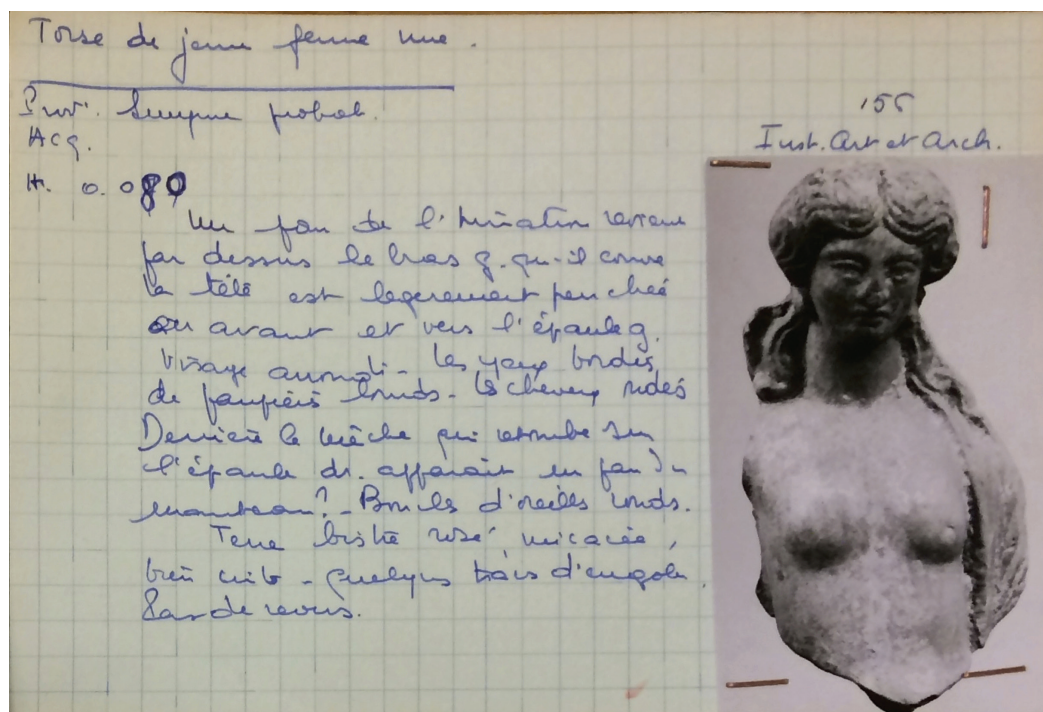 Torse de jeune femme nue.
Prov. Smyrne probab.
Acq.
H. 0.080
155
Inst. Art et Arch.
Un pan de l'himation revient
par dessus le bras g. qu'il couvre
la tête est légèrement penchée
en avant et vers l'épaule g.
Visage arrondi - les yeux bordés
de paupières lourds - les cheveux
Derrière la mèche qui retombe sur
l'épaule dr. apparaît un pan du
manteau? - Boucles d'oreilles rondes.
Terre bistre rosé micacée,
bien cuite - quelques traces d'engobe.
Pas de revers.